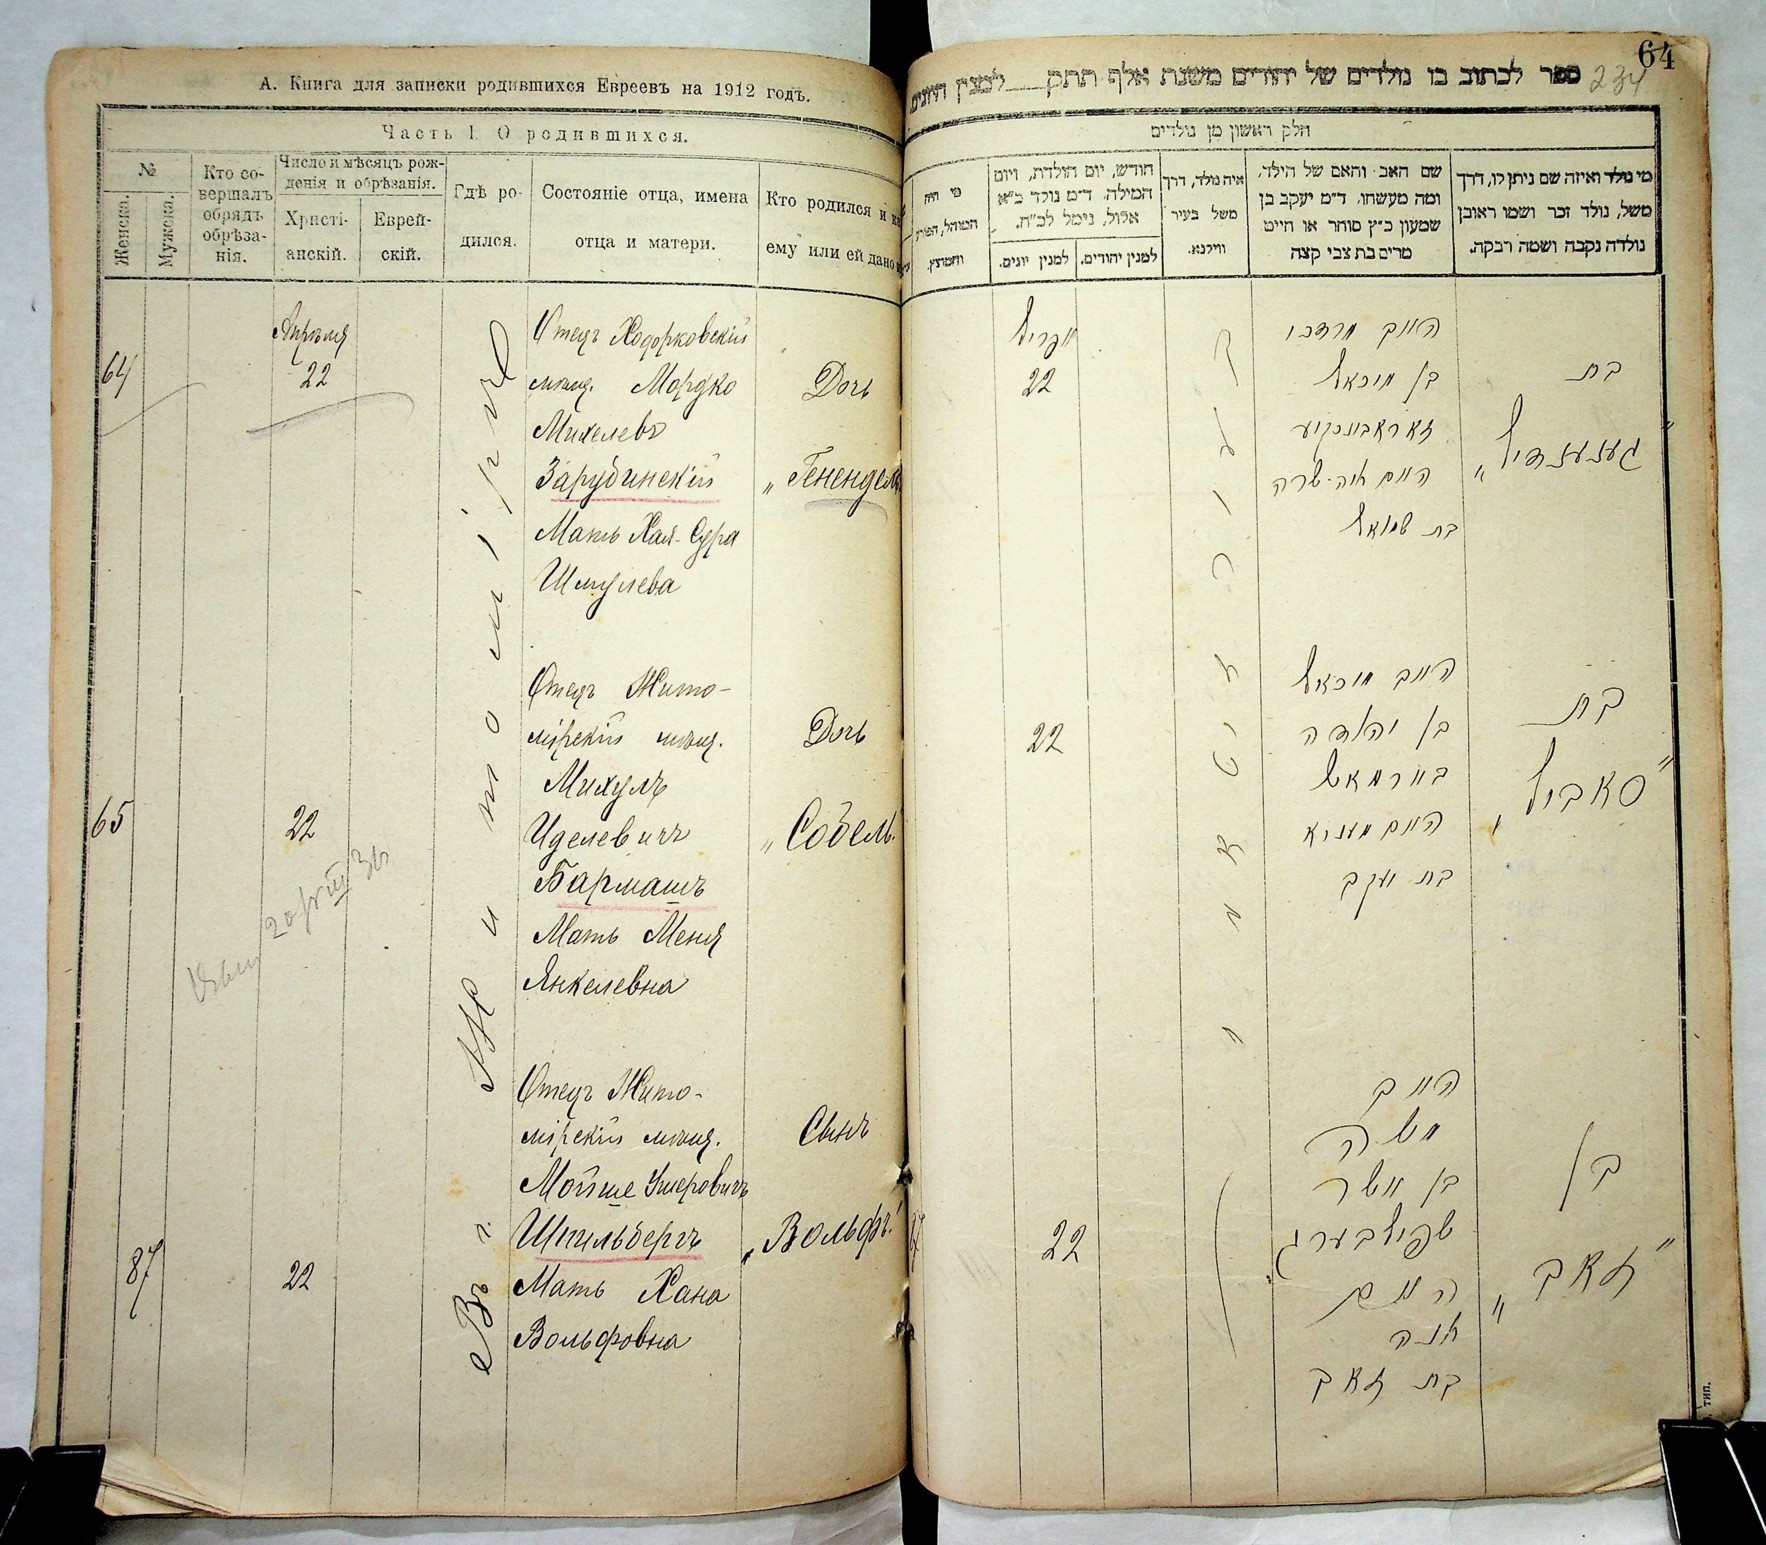 А. Книга для записки родившихся Евреевъ на 1912 годъ.
Часть I. О родившихся.
№
Женска.
Мужеска.
Кто со-
вершалъ
обрядъ
обрѣза-
нія.
Число и мѣсяцъ рож-
денія и обрѣзанія.
Христі-
анскій.
Еврей-
скій.
Гдѣ ро-
дился.
Состояніе отца, имена
отца и матери.
Кто родился и
ему или ей дано
64
Апрѣля
22
Отецъ Ходорковскій
мѣщ. Мордко
Михелевъ
Зарудинскій
Мать Хая-Сура
Шмулева
Дочь
„Генендель
65
22
Отецъ Жито-
мірскій мѣщ.
Михуль
Иделевичъ
Бармашъ
Мать Меня
Янкелевна
Дочь
„Собель
87
22
Отецъ Жито-
мірскій мѣщ.
Мойше Ушеровичъ
Шпильбергъ
Мать Хана
Вольфовна
Сынъ
„Вольфъ"
Въ г. Житомірѣ
64
234
ספר לכתוב בו נולדים של יהודים משנת אלף תתק לנצין היונים
חלק ראשון מן נולדים
מי נולד ואיזה שם ניתן לו, דרך
משל, נולד זכר ושמו ראובן
נולדה נקבה ושמה רבקה.
שם האב והאם של הילד,
ומה מעשהו. ד״מ יעקב בן
שמעון כ״ץ סוחר או חייט
מרים בת צבי קצה
איה נולד, דרך
משל בעיר
ווילנא.
חודש, יום הולדת, ויום
המילה. ד״מ נולד כ״א
אלול, נימל לכ״ח.
למנין יהודים.
למנין יונים.
מי היה
המוהל, הפורע
והמוצץ.
בת
„גענענדיל"
האב מרדכי
בן מיכאל
זאראבינסקיע
האם חיה-שרה
בת שמואל
אפריל
22
בת
„סאביל"
האב מיכאל
בן יהודה
בארמאש
האם מעניא
בת יעקב
22
בן
„זאב"
האב
משה
בן אשר
שפילבערג
האם
חנה
בת זאב
22
87
тип.